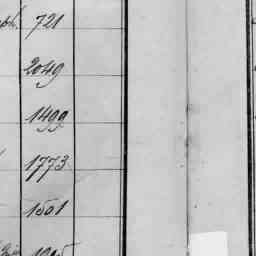 721
2049
1499
1773
1501